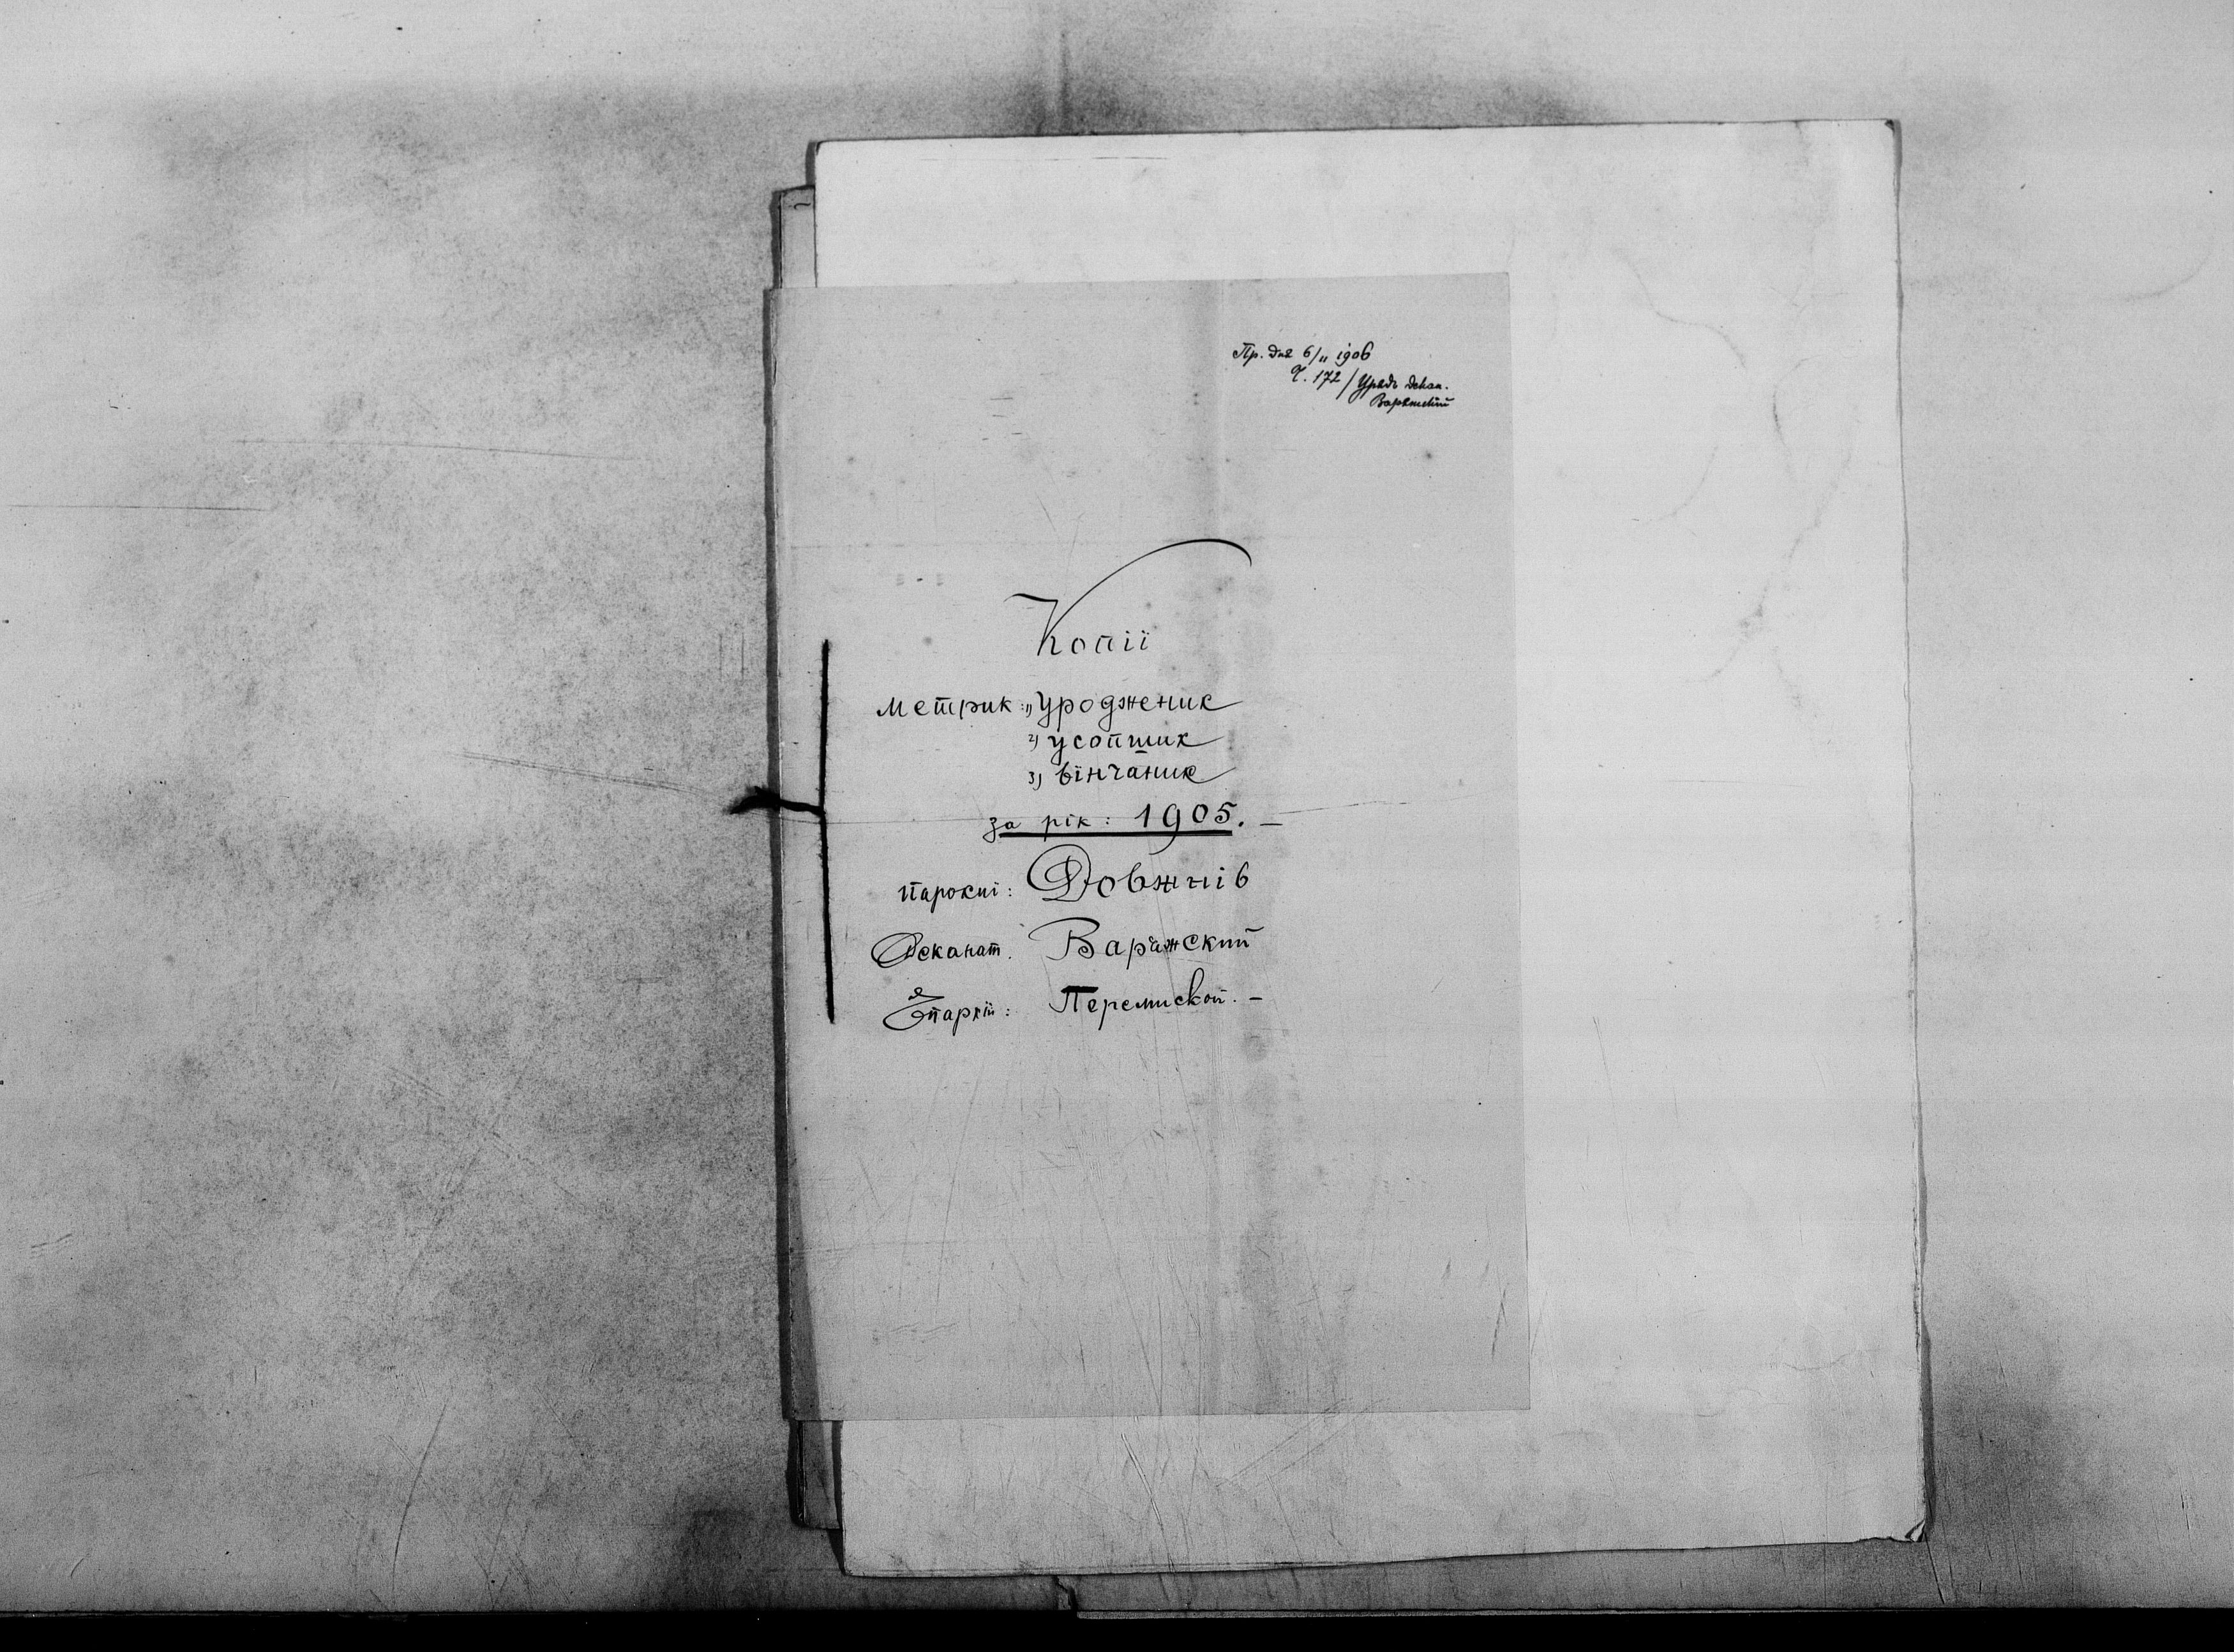 Пр. дня 6/II 1906
Ч. 172 / Урядъ декан.
Варяжскій
Копії
метрик: 1) уроджених
2) усопших
3) вінчаних
за рік: 1905. —
парохиї: Довжнів
Деканат. Варяжский
Епархії: Перемискої. —